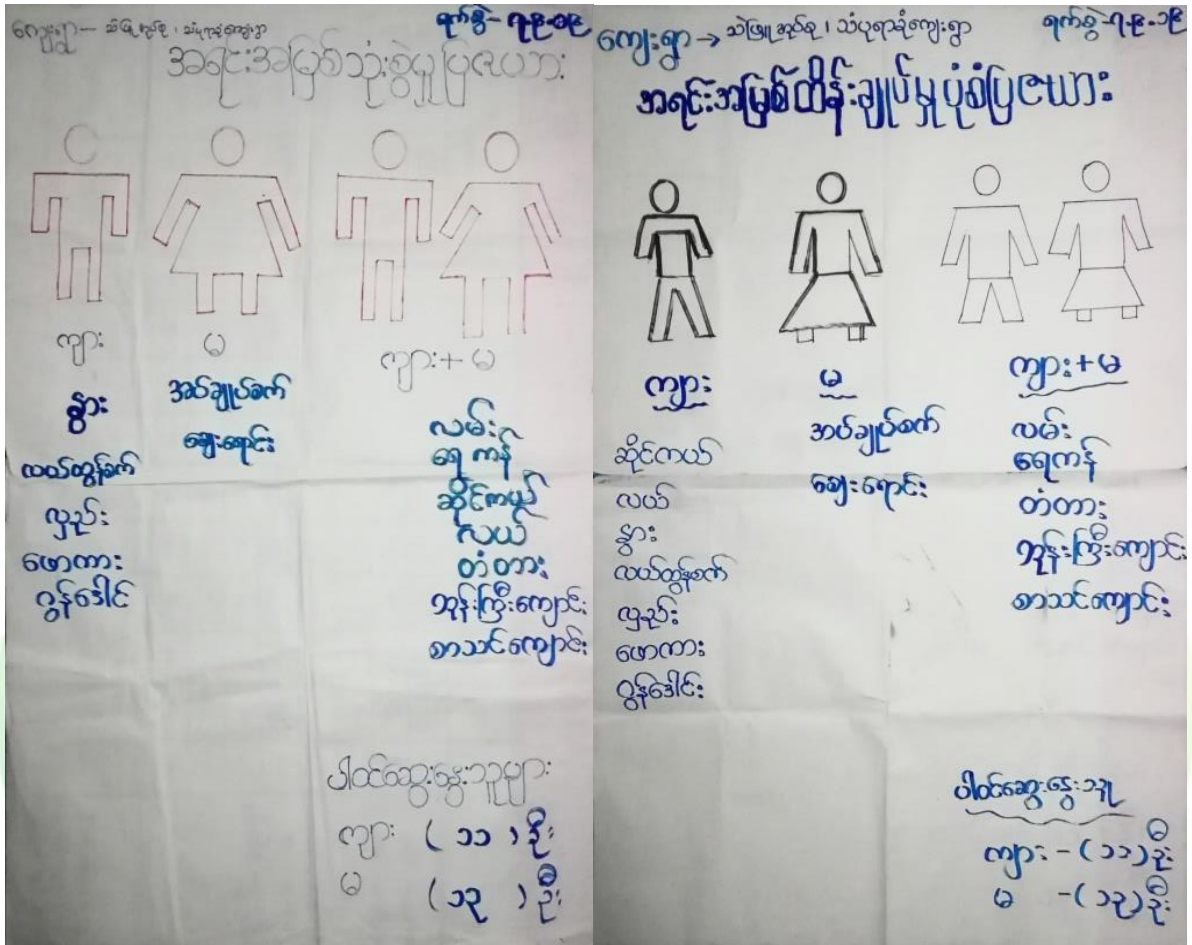 ကျေးရွာ - သဲဖြူအုပ်စု၊ သံပုရာခုံကျေးရွာ
ရက်စွဲ - ၇-၉-၁၉
အရင်းအမြစ်သုံးစွဲမှုပြဇယား
ကျား
မ
ကျား + မ
နွား
လယ်ထွန်စက်
လှည်း
ဖောကား
ဂွန်ဒေါင်
အပ်ချုပ်စက်
ဈေးရောင်း
လမ်း
ရေကန်
ဆိုင်ကယ်
လယ်
တံတား
ဘုန်းကြီးကျောင်း
စာသင်ကျောင်း
ပါဝင်ဆွေးနွေးသူများ
ကျား (၁၁) ဦး
မ (၁၃) ဦး
ကျေးရွာ → သဲဖြူအုပ်စု၊ သံပုရာခုံကျေးရွာ
ရက်စွဲ - ၇-၉-၁၉
အရင်းအမြစ်ထိန်းချုပ်မှုပုံစံပြဇယား
ကျား
မ
ကျား + မ
ဆိုင်ကယ်
လယ်
နွား
လယ်ထွန်စက်
လှည်း
ဖောကား
ဂွန်ဒေါင်း
အပ်ချုပ်စက်
ဈေးရောင်း
လမ်း
ရေကန်
တံတား
ဘုန်းကြီးကျောင်း
စာသင်ကျောင်း
ပါဝင်ဆွေးနွေးသူ
ကျား - (၁၁) ဦး
မ - (၁၃) ဦး